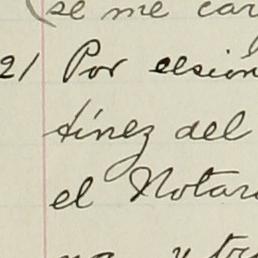 (se me car
2/ Por cesión
tínez del
el Notar
y tr